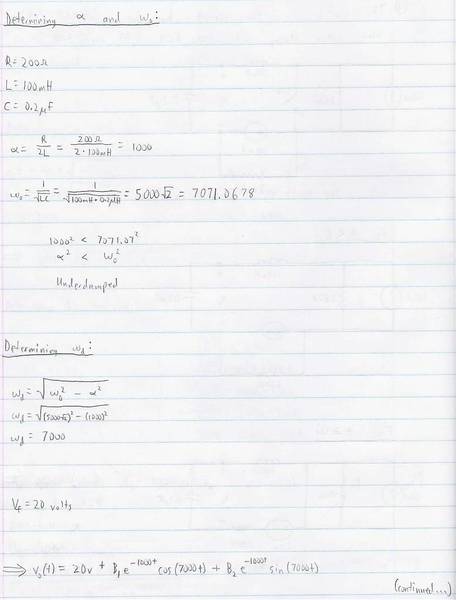 Determining α and ω₀:
R = 200Ω
L = 100mH
C = 0.2μF
α = R/2L = 200Ω/2·100mH = 1000
ω₀ = 1/√LC = 1/√100mH·0.2μH = 5000√2 = 7071.0678
1000² < 7071.07²
α² < ω₀²
Underdamped
Determining ωd:
ωd = √ω₀² - α²
ωd = √(5000√2)² - (1000)²
ωd = 7000
Vf = 20 volts
⟹ v₀(t) = 20v + B₁e^-1000t cos(7000t) + B₂e^-1000t sin(7000t)
(continued...)